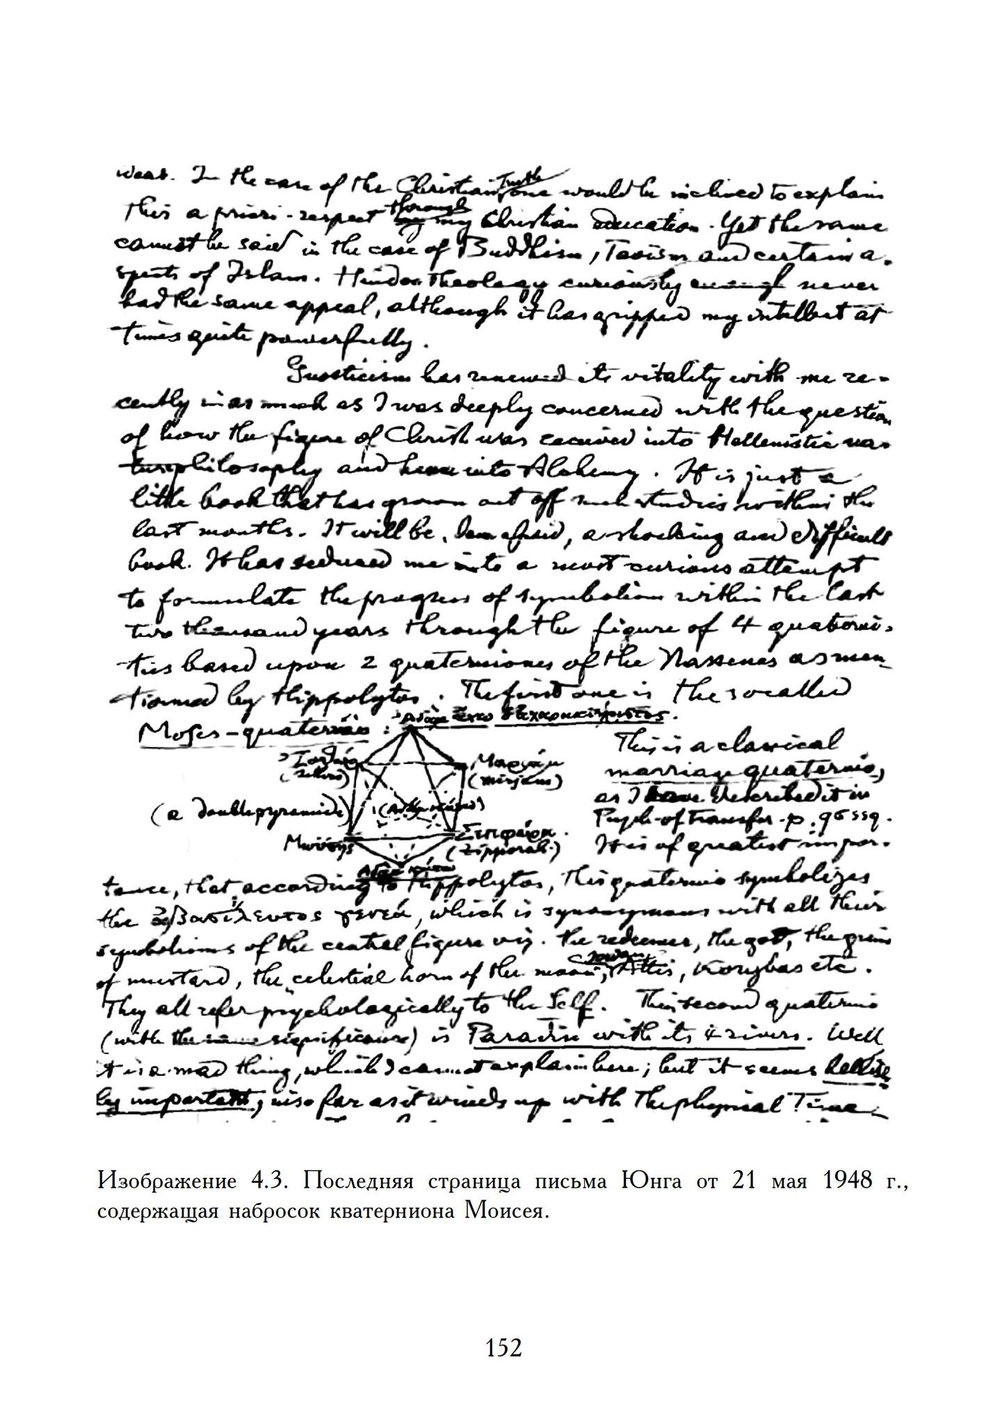 In the case of the Christian Truth one would be inclined to explain
this a priori-respect through my Christian education. Yet the same
cannot be said in the case of Buddhism, Taoism and certain a-
spects of Islam. Hindoo Theology curiously enough never
had the same appeal, although it has gripped my intellect at
times quite powerfully.
Gnosticism has renewed its vitality with me re-
cently in as much as I was deeply concerned with the question
of how the figure of Christ was received into Hellenistic na-
turephilosophy and hence into Alchemy. It is just a
little book that has grown out off such studies within the
last months. It will be, I am afraid, a shocking and difficult
book. It has seduced me into a most curious attempt
to formulate the progress of symbolism within the last
two thousand years through the figure of 4 quaterni-
ties based upon 2 quaterniones of the Nassenes as men-
tioned by Hippolytos. The first one is the socalled
Moses-quaternio:
This is a classical
marriage quaternio,
as I have described it in
Psych. of transfer. p. 96 ssq.
It is of greatest impor-
Μαριάμ
(mirjam)
(a doublepyramide)
Μωϋσῆς
Σεπφώρα
(Zipporah.)
tance, that according to Hippolytos, this quaternio symbolizes
the ἀβασίλευτος γενεά, which is synonymous with all their
symbolisms of the central figure viz. the redeemer, the god, the grain
of mustard, the celestial horn of the moon, Attis, Korybas etc.
They all refer psychologically to the Self. The second quaternio
(with the same significance) is Paradise with its 4 rivers. Well
it is a mad thing, which I cannot explain here; but it seems
important, in so far as it winds up with the physical Time
Изображение 4.3. Последняя страница письма Юнга от 21 мая 1948 г.,
содержащая набросок кватерниона Моисея.
152